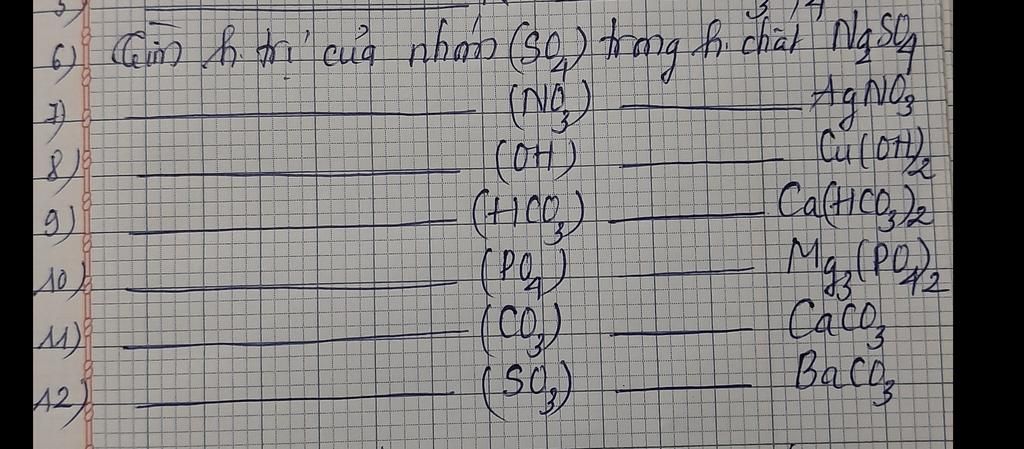 5)
6) (Tìm) h. trị của nhóm (SO4) trong h. chất Na2SO4
7) ____ (NO3) ____ AgNO3
8) ____ (OH) ____ Cu(OH)2
9) ____ (HCO3) ____ Ca(HCO3)2
10) ____ (PO4) ____ Mg3(PO4)2
11) ____ (CO3) ____ CaCO3
12) ____ (SO3) ____ BaCO3